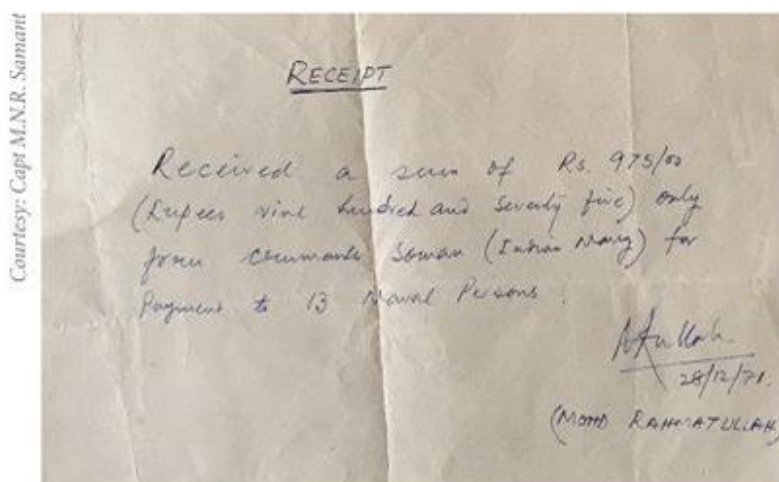 Courtesy: Capt M.N.R. Samant
RECEIPT
Received a sum of Rs. 975/00
(Rupees nine hundred and seventy five) only
from Commander (Indian Navy) for
Payment to 13 Naval Persons.
28/12/71.
(MOHD RAHMATULLAH)